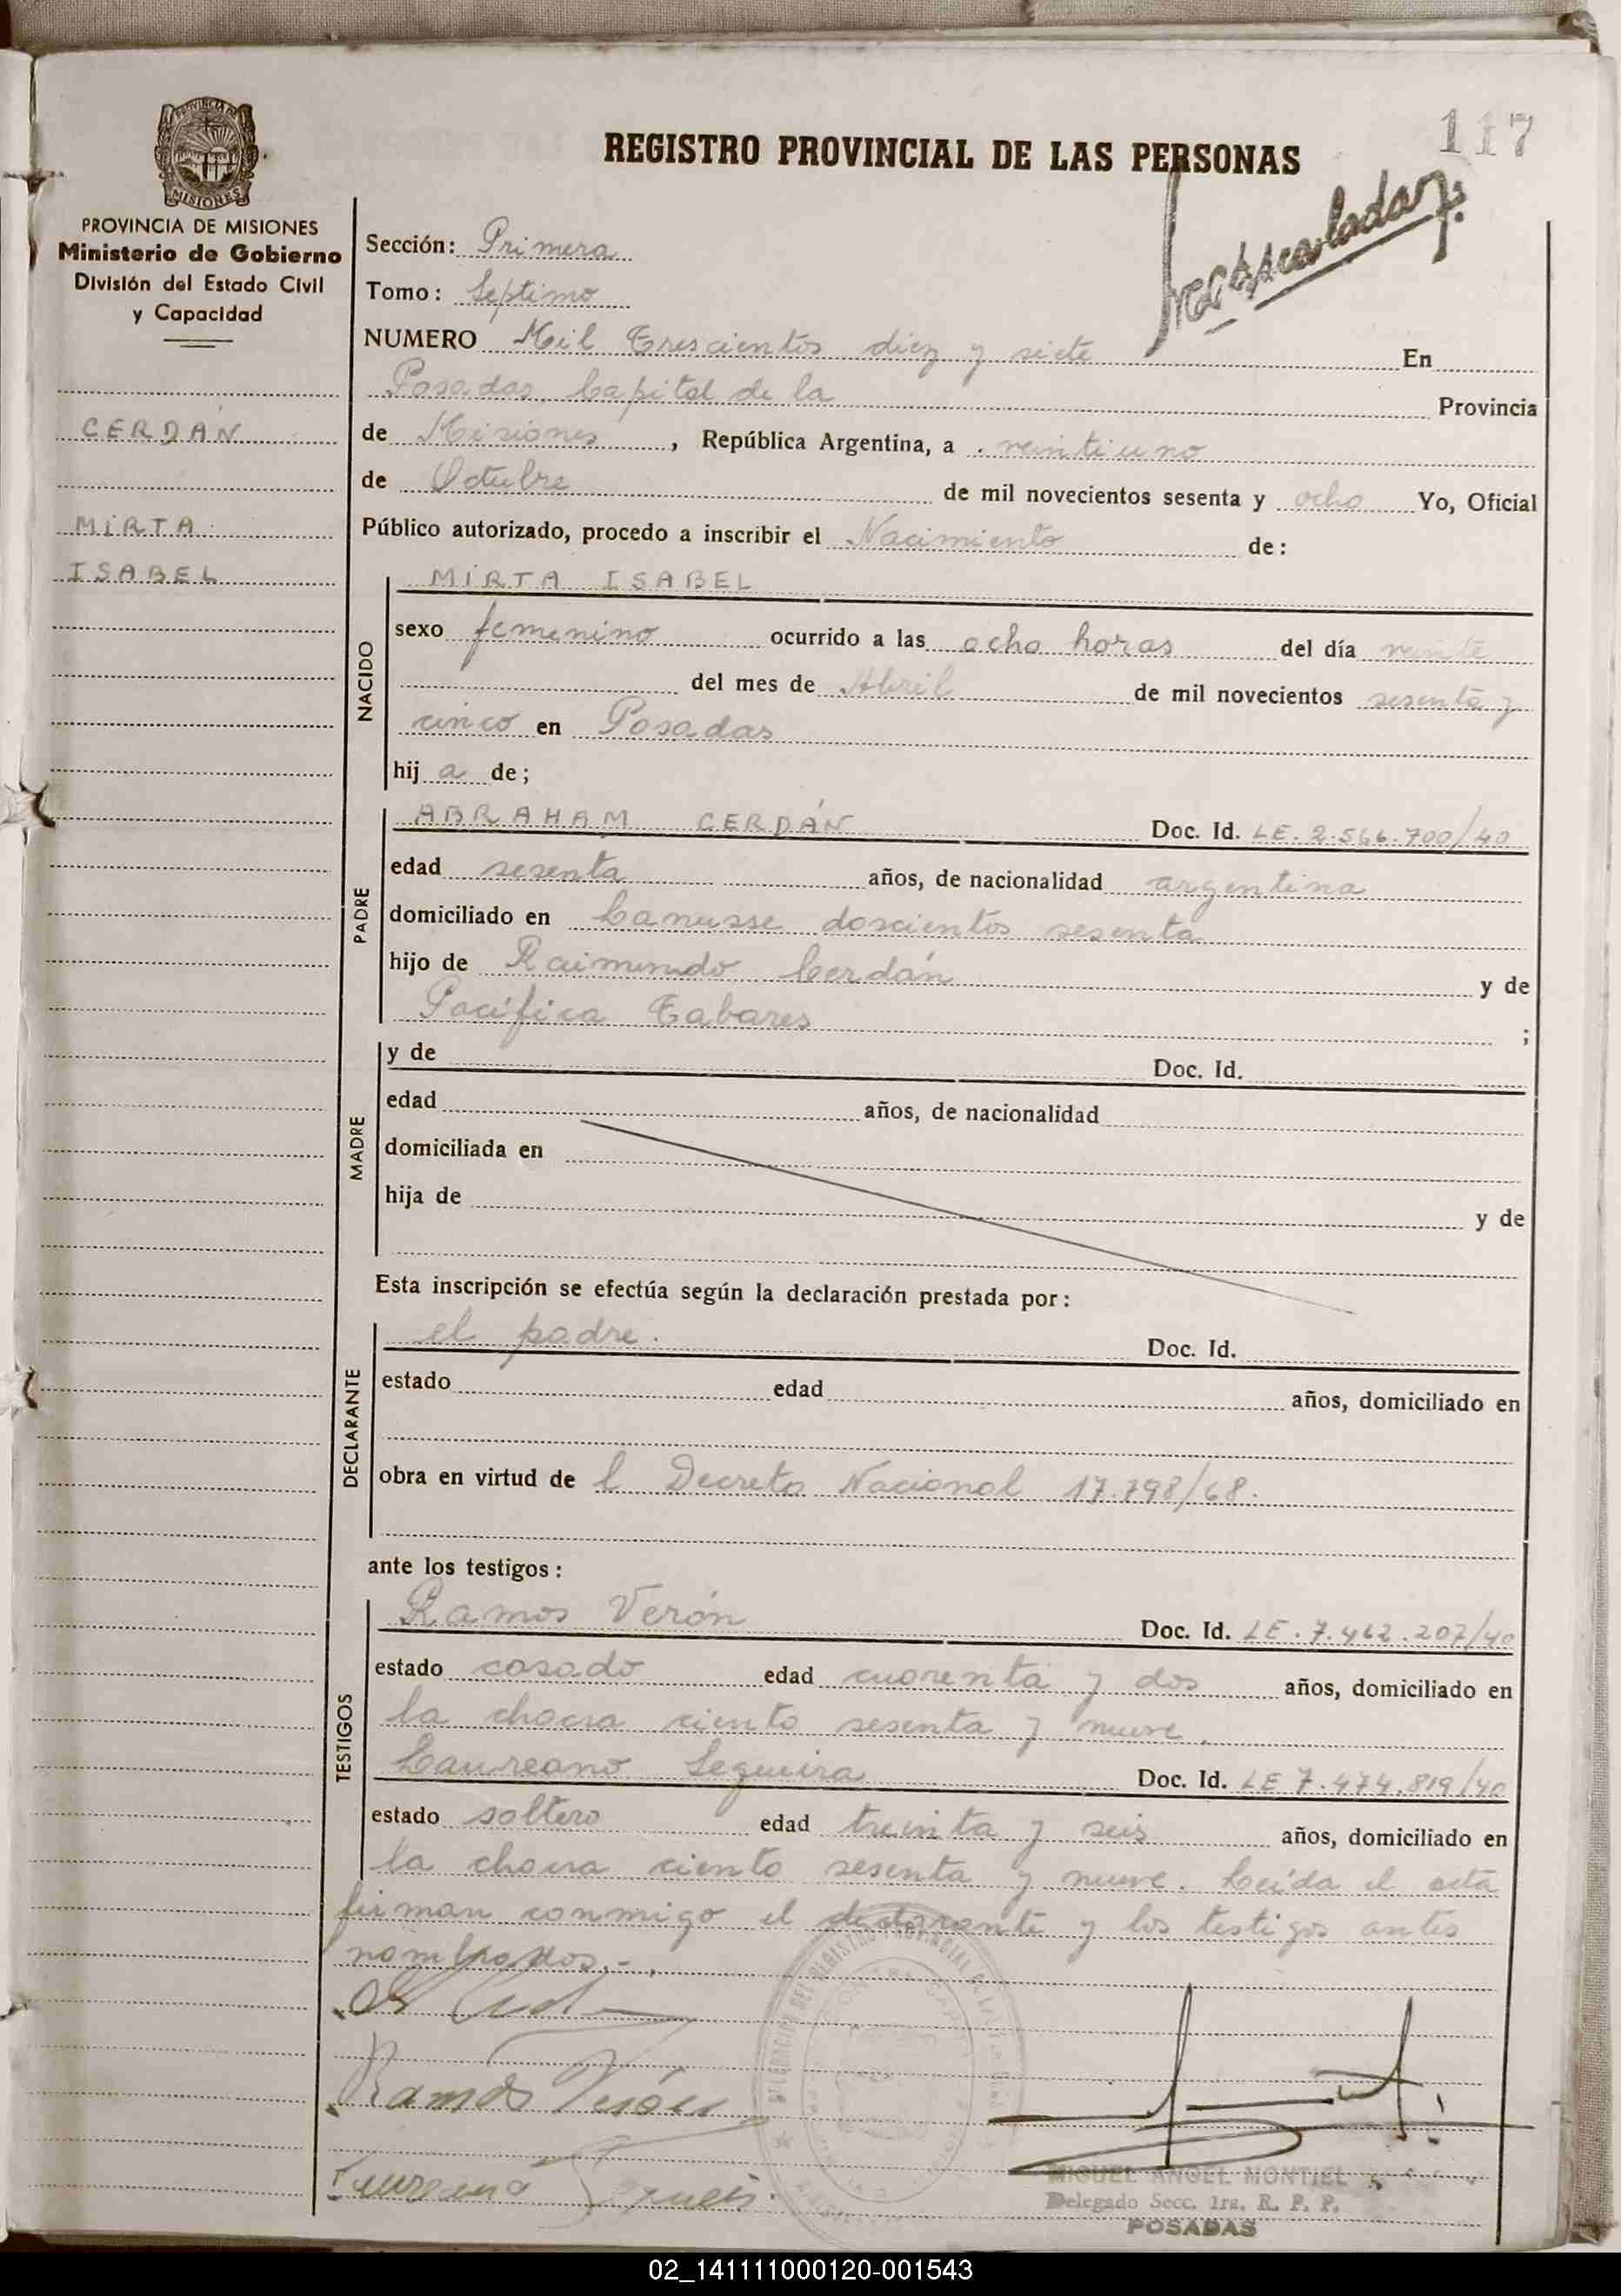 117
REGISTRO PROVINCIAL DE LAS PERSONAS
PROVINCIA DE MISIONES
Ministerio de Gobierno
División del Estado Civil
y Capacidad
CERDÁN
MIRTA
ISABEL
Sección: Primera
Tomo: Septimo
NUMERO Mil Trescientos diez y siete En
Posadas, Capital de la Provincia
de Misiones, República Argentina, a veintiuno
de Octubre de mil novecientos sesenta y ocho Yo, Oficial
Público autorizado, procedo a inscribir el Nacimiento de:
NACIDO
MIRTA ISABEL
sexo femenino ocurrido a las ocho horas del día veinte
del mes de Abril de mil novecientos sesenta y
cinco en Posadas
hij a de;
PADRE
ABRAHAM CERDÁN Doc. Id. LE. 2.566.700/40
edad sesenta años, de nacionalidad argentina
domiciliado en Lanusse doscientos sesenta
hijo de Raimundo Cerdán y de
Pacífica Tabares ;
MADRE
y de Doc. Id.
edad años, de nacionalidad
domiciliada en
hija de y de
Esta inscripción se efectúa según la declaración prestada por:
DECLARANTE
el padre. Doc. Id.
estado edad años, domiciliado en
obra en virtud de l Decreto Nacional 17.798/68.
ante los testigos:
TESTIGOS
Ramos Verón Doc. Id. LE. 7.462.207/40
estado casado edad cuarenta y dos años, domiciliado en
la chacra ciento sesenta y nueve.
Laureano Sequeira Doc. Id. LE 7.474.819/40
estado soltero edad treinta y seis años, domiciliado en
la chacra ciento sesenta y nueve. Leída el acta
firman conmigo el declarante y los testigos antes
nombrados.-.
Ramos Verón
MIGUEL ANGEL MONTIEL
Delegado Secc. 1ra. R. P. P.
POSADAS
02_141111000120-001543